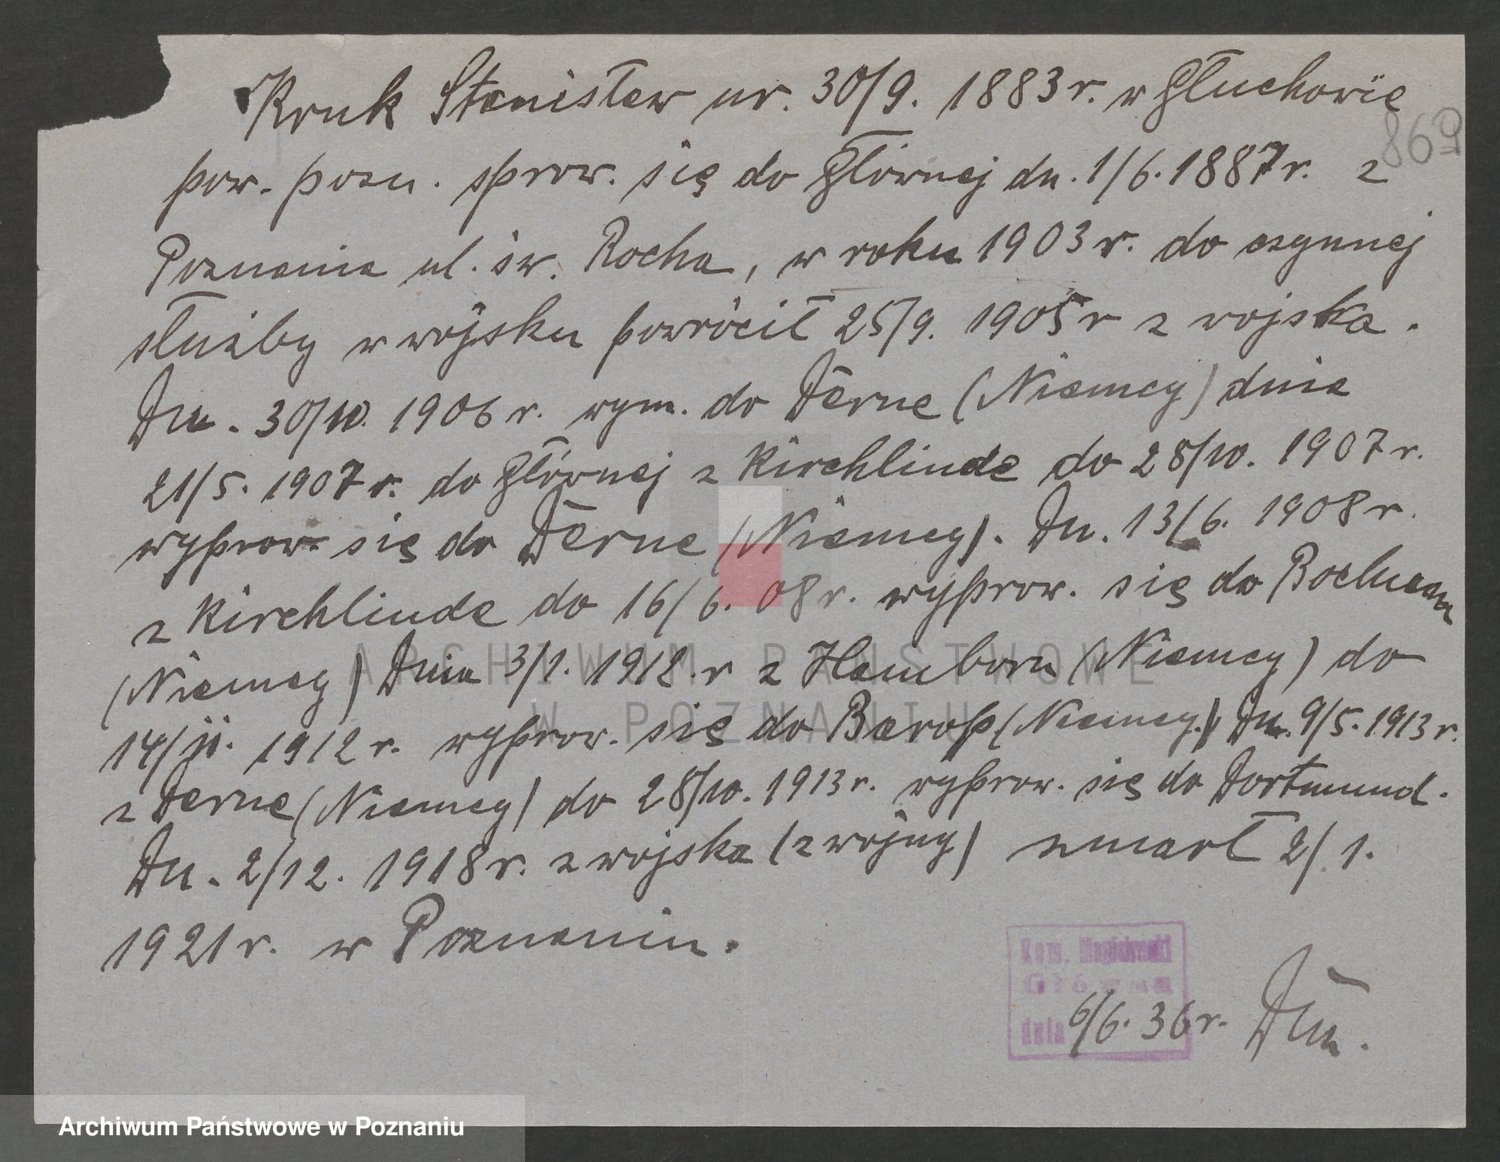 Kruk Stanisław ur. 30/9. 1883 r. w Głuchowie
869
pow. pozn. sprow. się do Głównej dn. 1/6. 1887 r. z
Poznania ul. św. Rocha, w roku 1903 r. do czynnej
służby w wojsku powrócił 25/9. 1905 r z wojska.
Dn. 30/10. 1906 r. wym. do Derne (Niemcy) dnia
21/5. 1907 r. do Głównej z Kirchlinde do 28/10. 1907 r.
wyprow. się do Derne (Niemcy). Dn. 13/6. 1908 r.
z Kirchlinde do 16/6. 08 r. wyprow. się do Bochum
(Niemcy) Dnia 3/1. 1912. r z Hamborn (Niemcy) do
14/11. 1912 r. wyprow. się do Barop (Niemcy.) Dn. 9/5. 1913 r.
z Derne (Niemcy) do 28/10. 1913 r. wyprow. się do Dortmund.
Dn. 2/12. 1918 r. z wojska (z wojny) zmarł 2/1.
1921 r. w Poznaniu.
Kom.
Główna
dnia 6/6. 36 r.
ARCHIWUM PAŃSTWOWE
W POZNANIU
Archiwum Państwowe w Poznaniu